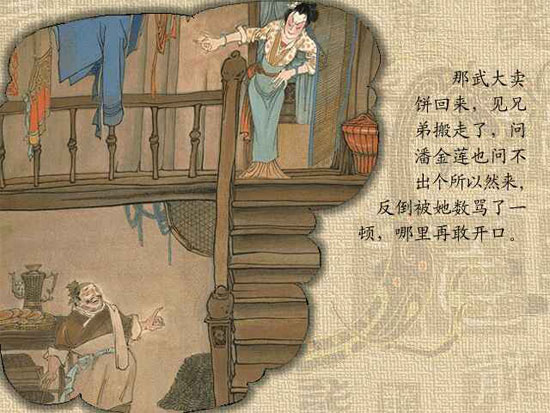 那武大卖
饼回来，见兄
弟搬走了，问
潘金莲也问不
出个所以然来，
反倒被她数骂了一
顿，哪里再敢开口。